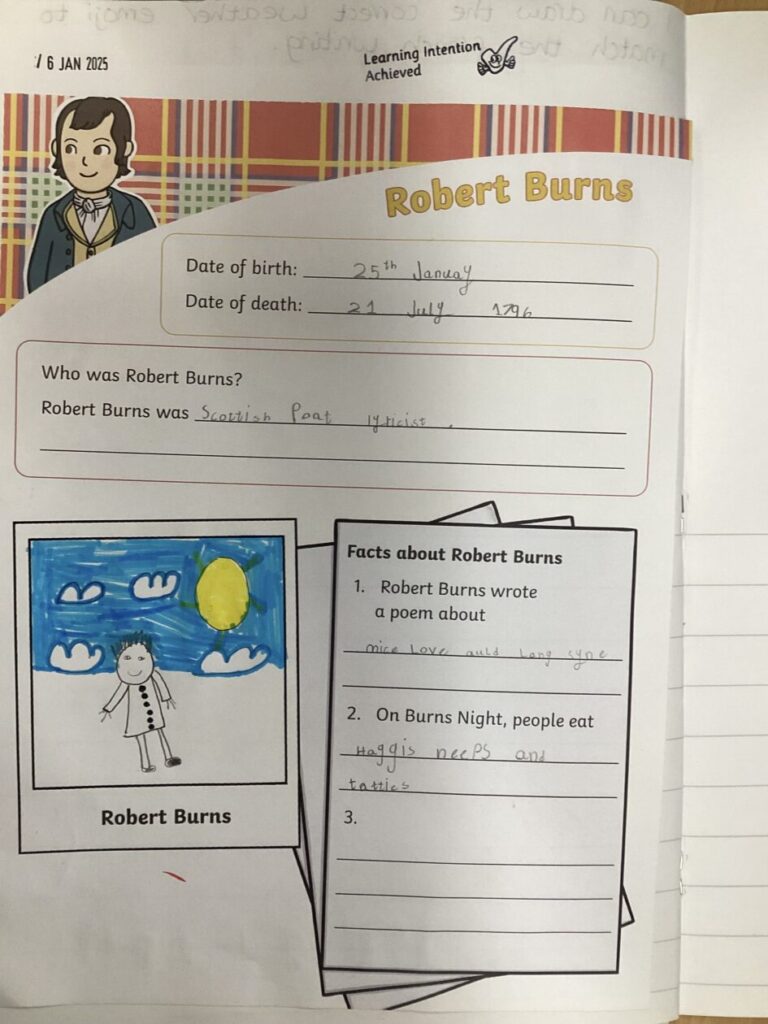 I can draw the correct weather emoji to
match the writing.
/ 6 JAN 2025
Learning Intention
Achieved
Robert Burns
Date of birth: 25th Januay
Date of death: 21 July 1796
Who was Robert Burns?
Robert Burns was Scottish Poat lyricist .
Robert Burns
Facts about Robert Burns
1. Robert Burns wrote
a poem about
mice Love auld Lang syne
2. On Burns Night, people eat
Haggis neePs and
tatties
3.